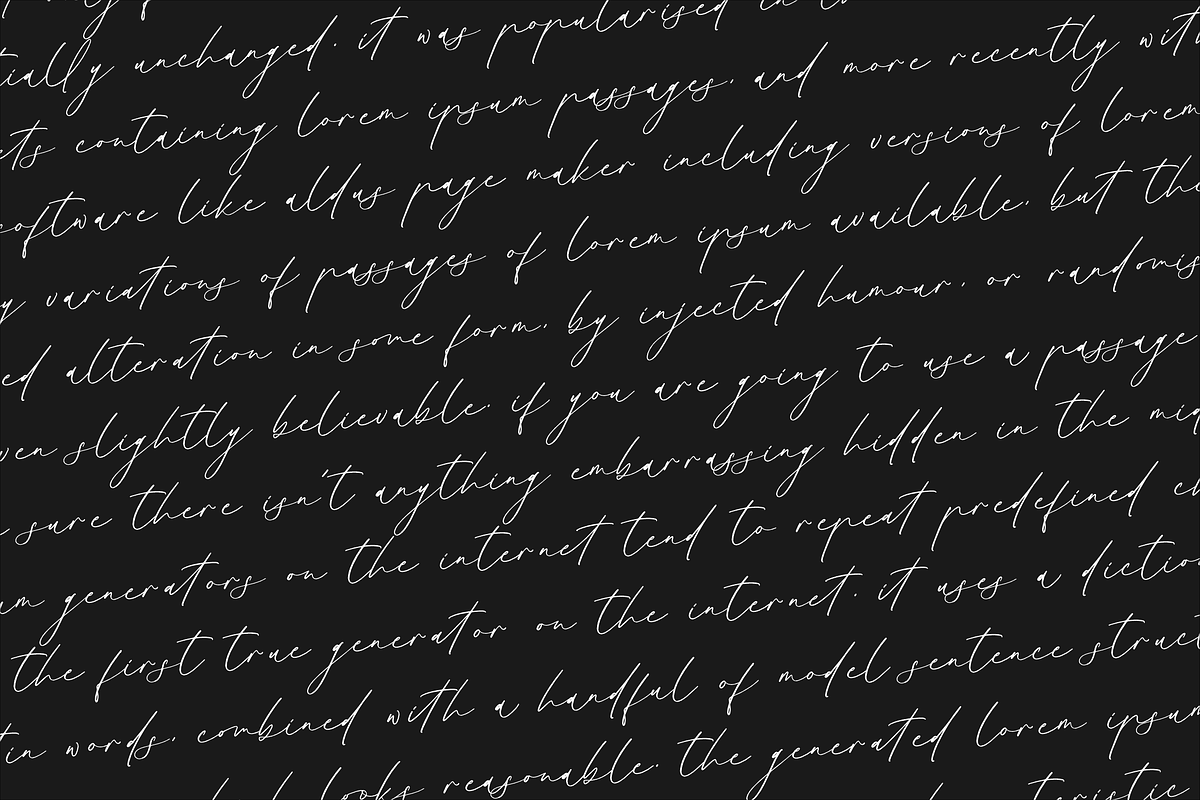 tially unchanged. it was popularised in
ets containing lorem ipsum passages, and more recently with
software like aldus page maker including versions of lorem
y variations of passages of lorem ipsum available, but the
ed alteration in some form, by injected humour, or randomis
ven slightly believable. if you are going to use a passage
sure there isn't anything embarrassing hidden in the mid
um generators on the internet tend to repeat predefined ch
the first true generator on the internet. it uses a diction
tin words, combined with a handful of model sentence struct
looks reasonable. the generated lorem ipsum
teristic